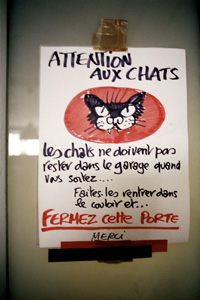 ATTENTION
AUX CHATS
les chats ne doivent pas
rester dans le garage quand
vous sortez....
Faites-les rentrer dans
le couloir et...
FERMEZ cette PORTE
MERCI